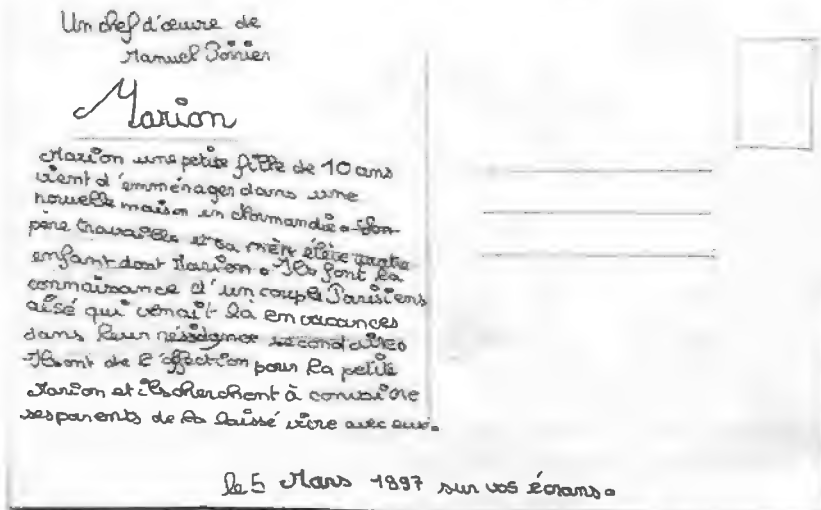 Un chef d'œuvre de
Manuel Poirier
Marion
Marion une petite fille de 10 ans
vient d'emménager dans une
nouvelle maison en Normandie. Son
père travaille et sa mère élève quatre
enfant dont Marion. Ils font la
connaissance d'un couple Parisiens
aisé qui venait là en vacances
dans leur résidence secondaires
Ils ont de l'affection pour la petite
Marion et ils cherchent à convaincre
ses parents de la laissé vivre avec eux.
le 5 Mars 1997 sur vos écrans.